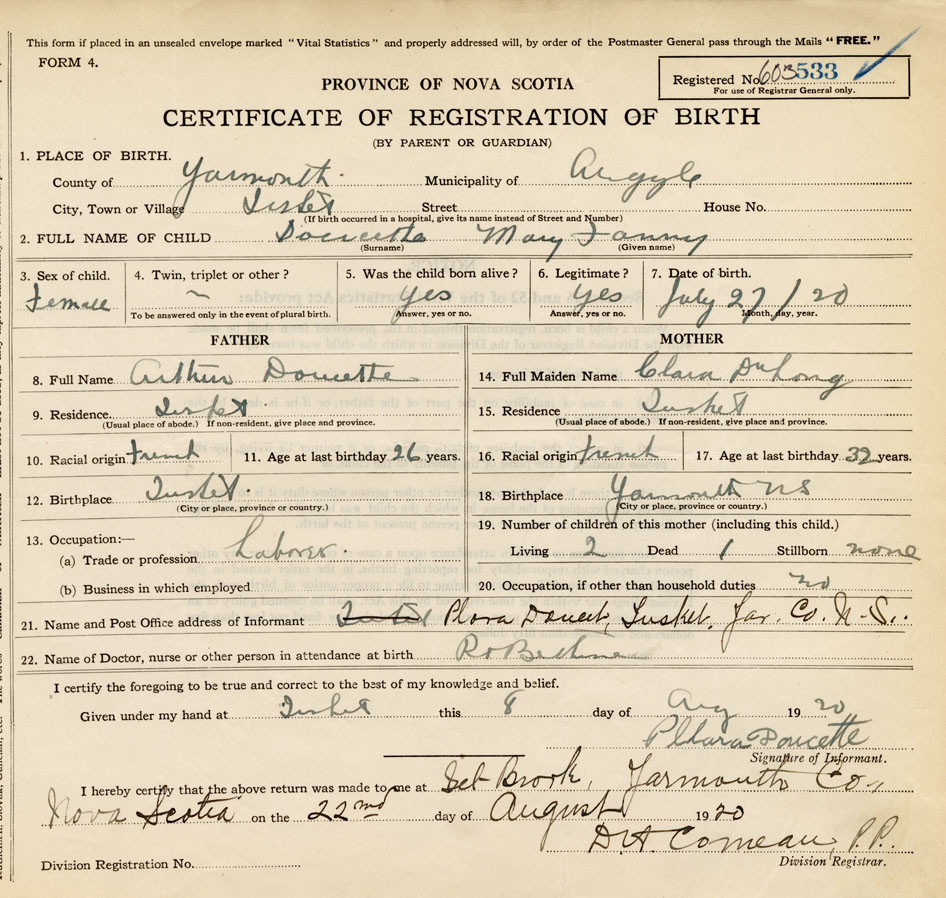 This form if placed in an unsealed envelope marked "Vital Statistics" and properly addressed will, by order of the Postmaster General pass through the Mails "FREE."
FORM 4.
Registered No. 603533
For use of Registrar General only.
PROVINCE OF NOVA SCOTIA
CERTIFICATE OF REGISTRATION OF BIRTH
(BY PARENT OR GUARDIAN)
1. PLACE OF BIRTH.
County of Yarmouth Municipality of Argyle
City, Town or Village Tusket Street House No.
(If birth occurred in a hospital, give its name instead of Street and Number)
2. FULL NAME OF CHILD Doucette Mary Fanny
(Surname) (Given name)
3. Sex of child. 4. Twin, triplet or other? 5. Was the child born alive? 6. Legitimate? 7. Date of birth.
Female ~ yes yes July 27/20
To be answered only in the event of plural birth. Answer, yes or no. Answer, yes or no. Month, day, year.
FATHER
8. Full Name Arthur Doucette
9. Residence Tusket
(Usual place of abode.) If non-resident, give place and province.
10. Racial origin french 11. Age at last birthday 26 years.
12. Birthplace Tusket
(City or place, province or country.)
13. Occupation:—
(a) Trade or profession Laborer
(b) Business in which employed
MOTHER
14. Full Maiden Name Clara
15. Residence Tusket
(Usual place of abode.) If non-resident, give place and province.
16. Racial origin french 17. Age at last birthday 32 years.
18. Birthplace Yarmouth NS
(City or place, province or country.)
19. Number of children of this mother (including this child.)
Living 2 Dead 1 Stillborn none
20. Occupation, if other than household duties no
21. Name and Post Office address of Informant Tusket Doucet, Tusket, Yar. Co. N.S.
22. Name of Doctor, nurse or other person in attendance at birth
I certify the foregoing to be true and correct to the best of my knowledge and belief.
Given under my hand at Tusket this 8 day of Aug 1920
Doucette
Signature of Informant.
I hereby certify that the above return was made to me at Brook, Yarmouth Co.,
Nova Scotia on the 22nd day of August 1920
D.A. Comeau, P.P.
Division Registration No. Division Registrar.